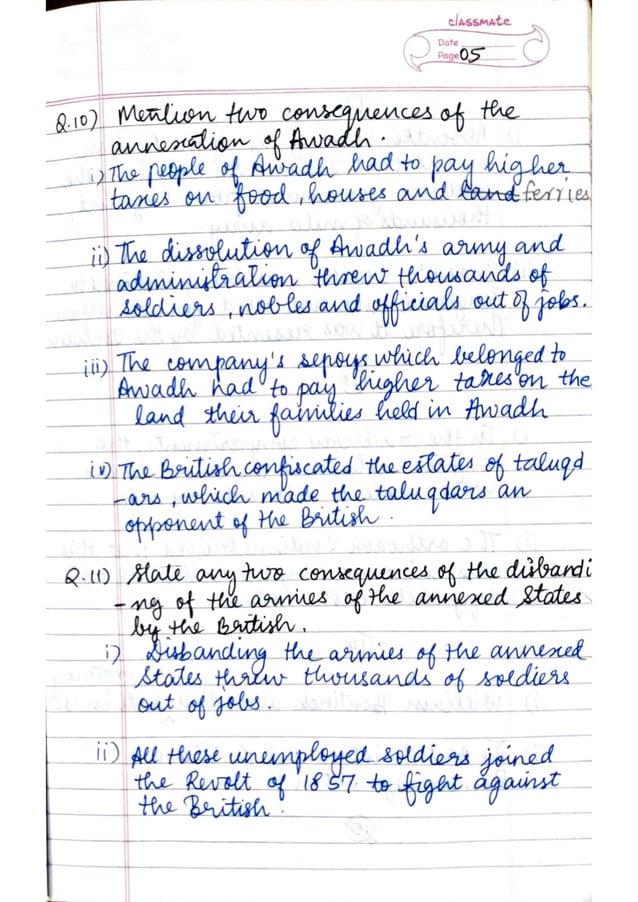 classmate
Date
Page 05
Q.10) Mention two consequences of the
annexation of Awadh.
i) The people of Awadh had to pay higher
taxes on food, houses and land ferries
ii) The dissolution of Awadh's army and
administration threw thousands of
soldiers, nobles and officials out of jobs.
iii) The company's sepoys which belonged to
Awadh had to pay higher taxes on the
land their families held in Awadh
iv) The British confiscated the estates of taluqd
-ars, which made the taluqdars an
opponent of the British.
Q.11) State any two consequences of the disbandi
-ng of the armies of the annexed States
by the British.
i) Disbanding the armies of the annexed
States threw thousands of soldiers
out of jobs.
ii) All these unemployed soldiers joined
the Revolt of 1857 to fight against
the British.